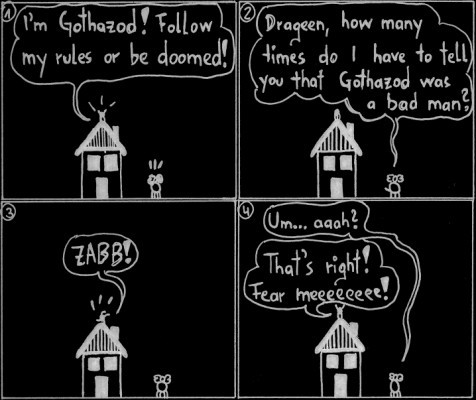 1
I'm Gothazod! Follow
my rules or be doomed!
2
Drageen, how many
times do I have to tell
you that Gothazod was
a bad man?
3
ZABB!
4
Um... aaah?
That's right!
Fear meeeeeeee!